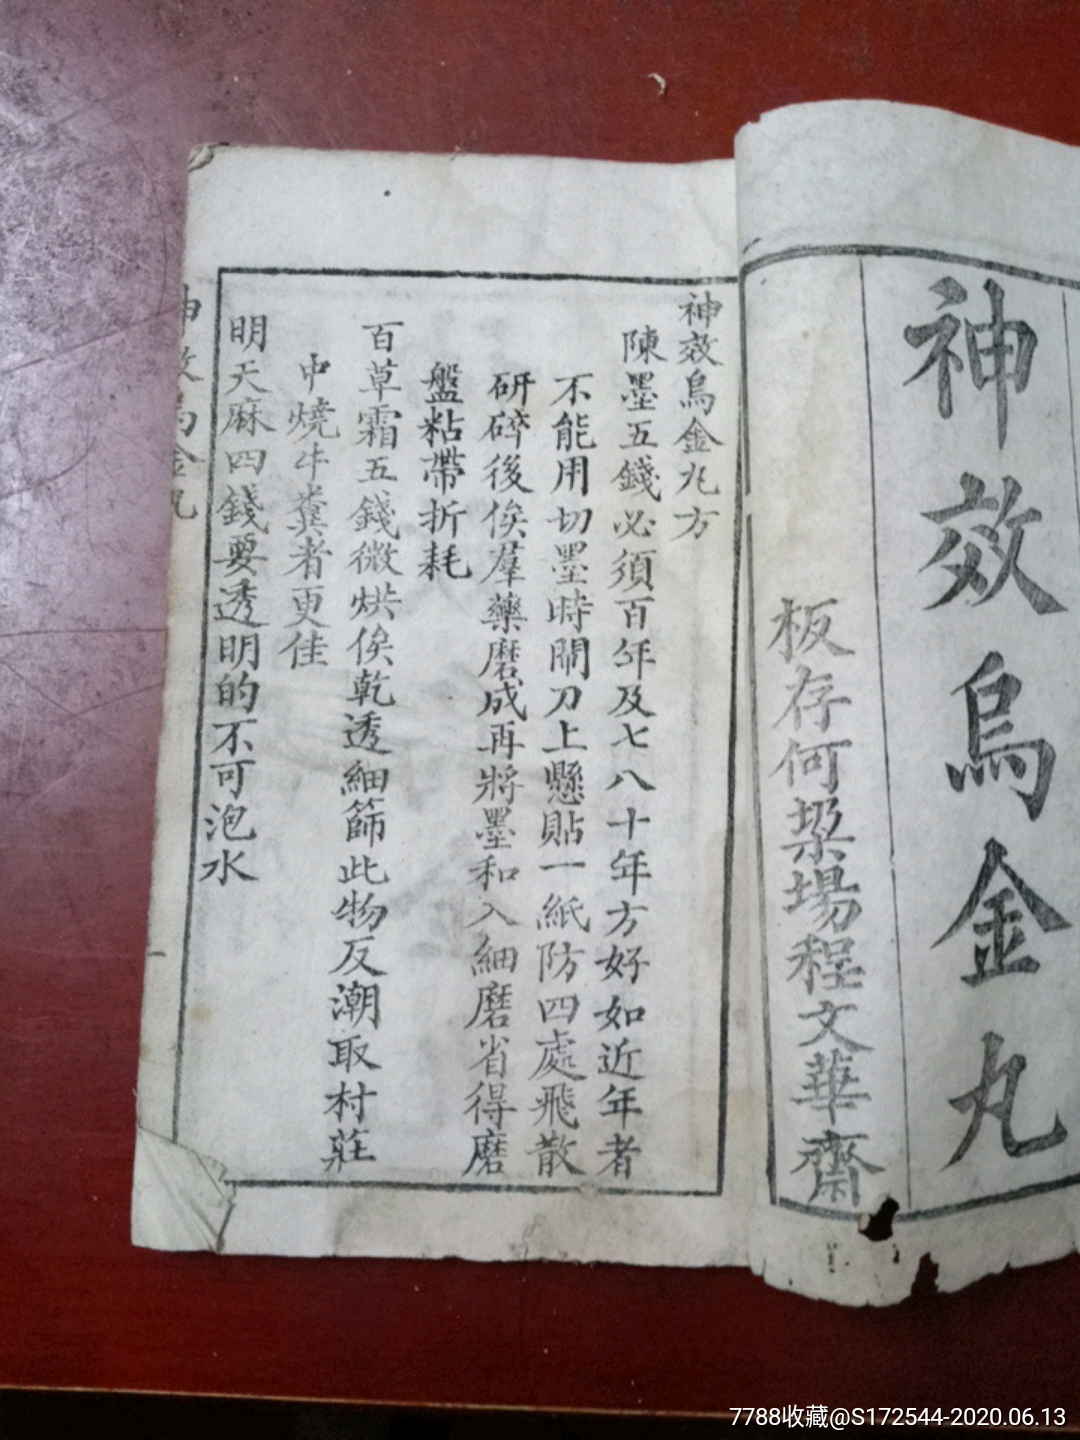 神效烏金丸
板存何垜場程文華齋
神效烏金丸方
陳墨五錢必須百年及七八十年方好如近年者
不能用切墨時閙刀上懸貼一紙防四處飛散
研碎後俟羣藥磨成再將墨和入細磨省得磨
盤粘帶折耗
百草霜五錢微烘俟乾透細篩此物反潮取村莊
中燒牛糞者更佳
明天麻四錢要透明的不可泡水
神效烏金丸
7788收藏@S172544-2020.06.13